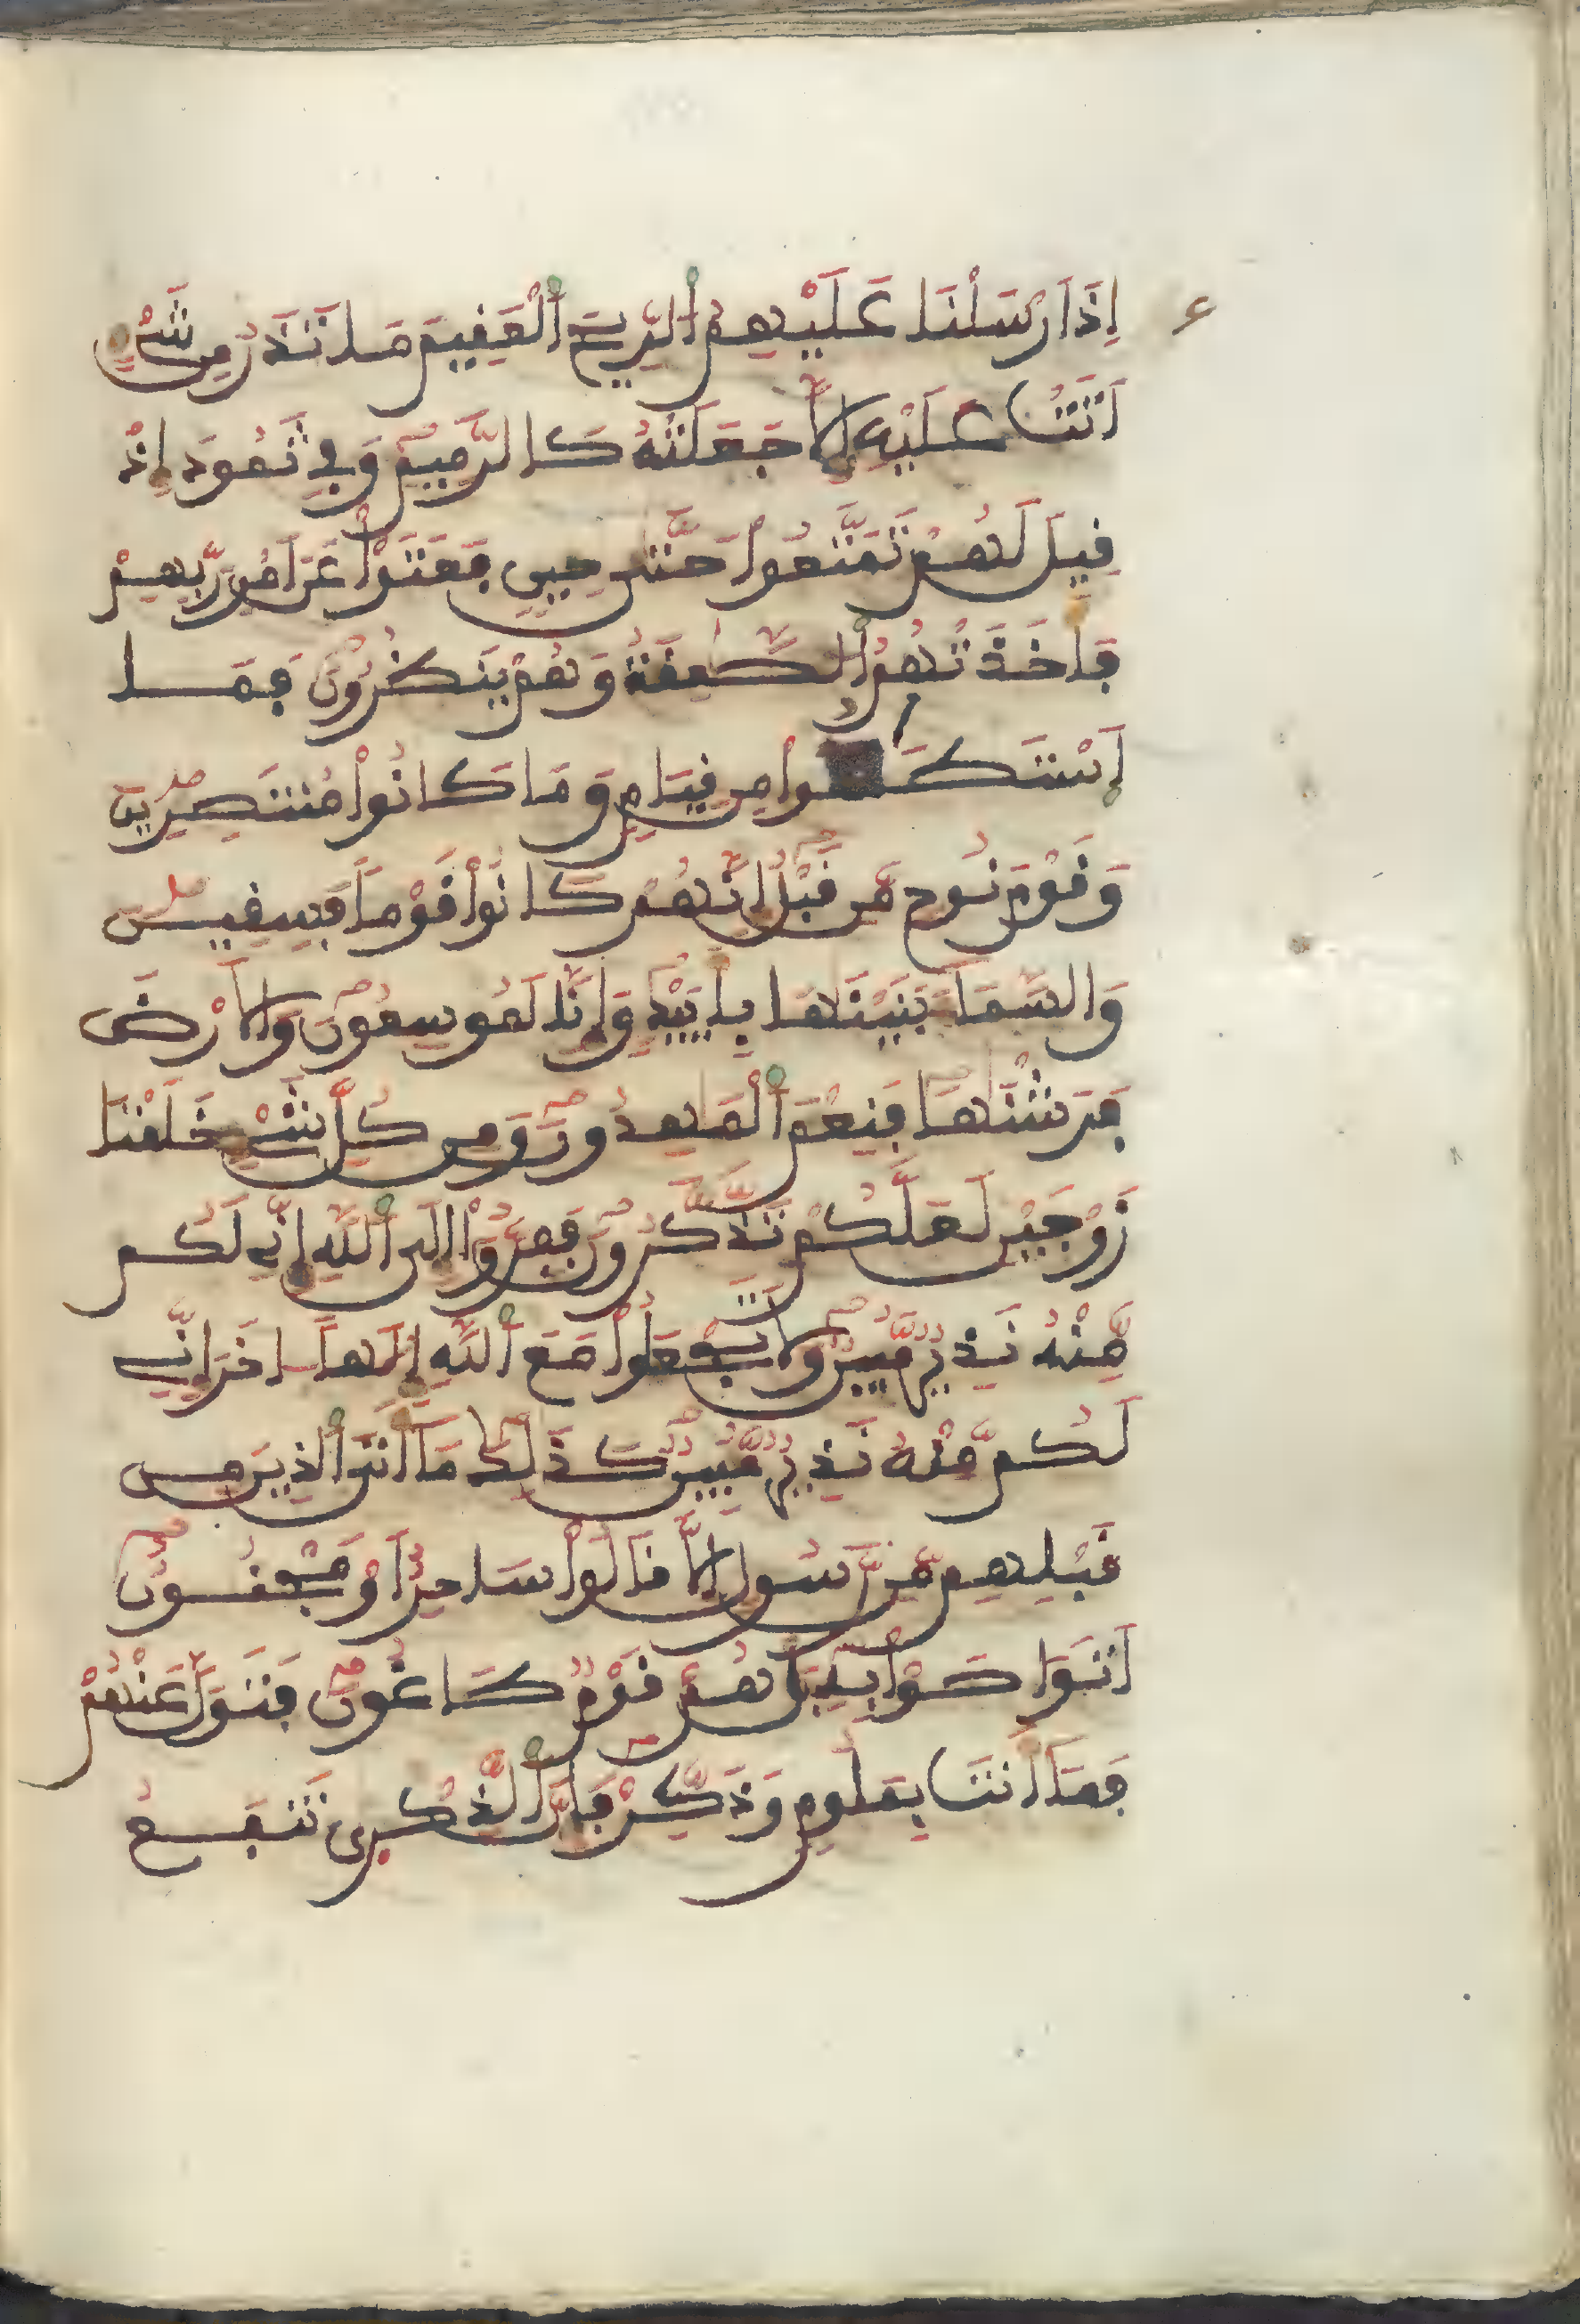 ع
إِذَ اَرْسَلْنَا عَلَيْهِمُ اُلرِّيحَ اَلْعَقِيمَ مَا تَذَرُ مِن شَےْءٍ
اَتَتْ عَلَيْهِ إِلَّا جَعَلَتْهُ كَالرَّمِيمِ وَفِے ثَمُودَ إِذْ
قِيلَ لَهُمْ تَمَتَّعُواْ حَتَّىٰ حِينٍ فَعَتَوْاْ عَنَ اَمْرِ رَبِّهِمْ
فَأَخَذَتْهُمُ اُلصَّٰعِقَةُ وَهُمْ يَنظُرُونَ فَمَا
اَسْتَطَٰعُواْ مِن قِيَامٍ وَمَا كَانُواْ مُنتَصِرِينَ
وَقَوْمَ نُوحٍ مِّن قَبْلُ إِنَّهُمْ كَانُواْ قَوْماً فَٰسِقِينَ
وَالسَّمَآءَ بَنَيْنَٰهَا بِأَيْيْدٍ وَإِنَّا لَمُوسِعُونَ وَالْأَرْضَ
فَرَشْنَٰهَا فَنِعْمَ اَلْمَٰهِدُونَ وَمِن كُلِّ شَےْءٍ خَلَقْنَا
زَوْجَيْنِ لَعَلَّكُمْ تَذَّكَّرُونَ فَفِرُّوٓاْ إِلَى اَللَّهِ إِنِّے لَكُم
مِّنْهُ نَذِيرٌ مُّبِينٌ وَلَا تَجْعَلُواْ مَعَ اَللَّهِ إِلَٰهاً اخَرَ إِنِّے
لَكُم مِّنْهُ نَذِيرٌ مُّبِينٌ كَذَٰلِكَ مَآ أَتَى اَلذِينَ مِن
قَبْلِهِم مِّن رَّسُولٍ إِلَّا قَالُواْ سَاحِرٌ اَوْ مَجْنُونٌ
اَتَوَاصَوْاْ بِهِ بَلْ هُمْ قَوْمٌ طَاغُونَ فَتَوَلَّ عَنْهُمْ
فَمَآ أَنتَ بِمَلُومٍ وَذَكِّرْ فَإِنَّ اَلذِّكْرَىٰ تَنفَعُ